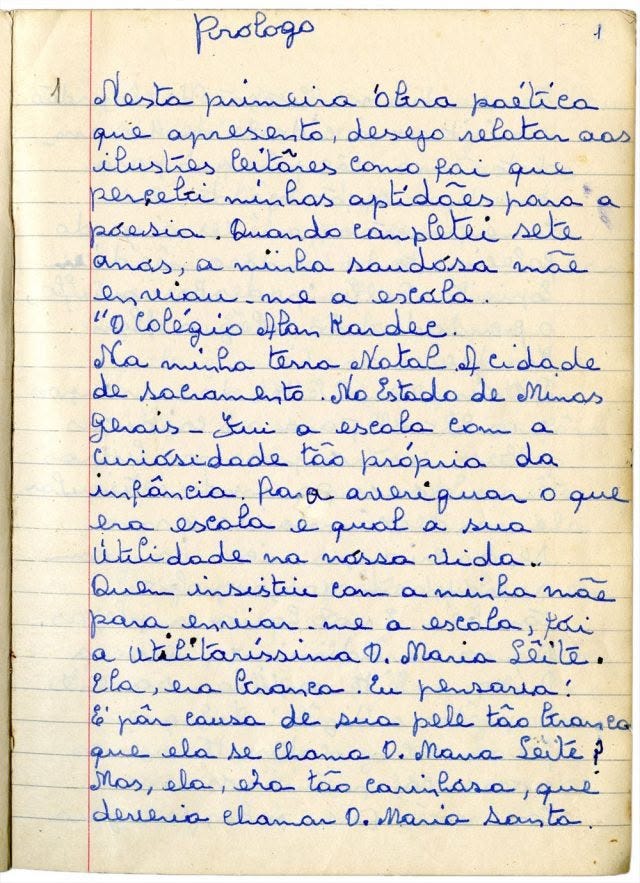 Prólogo 1
1 Nesta primeira óbra poética
que apresento, desejo relatar aos
ilustres leitôres como foi que
percebi minhas aptidões para a
póesia. Quando completei sete
anos, a minha saudósa mãe
enviou-me a escóla.
"O Colégio Alan Kardec.
Na minha terra Natal. A cidade
de sacramento. No Estado de Minas
Gerais - Fui a escola com a
curiósidade tão própria da
infância. Para averiguar o que
era escola e qual a sua
útilidade na nóssa vida.
Quem insistiu com a minha mãe
para enviar-me a escóla, foi
a utilitaríssima D. Maria Lêite.
Ela, era branca. Eu pensava!
É pôr causa de sua pele tão branca
que ela se chama D. Maria Lêite?
Mas, ela, era tão carinhósa, que
deveria chamar D. Maria Santa.